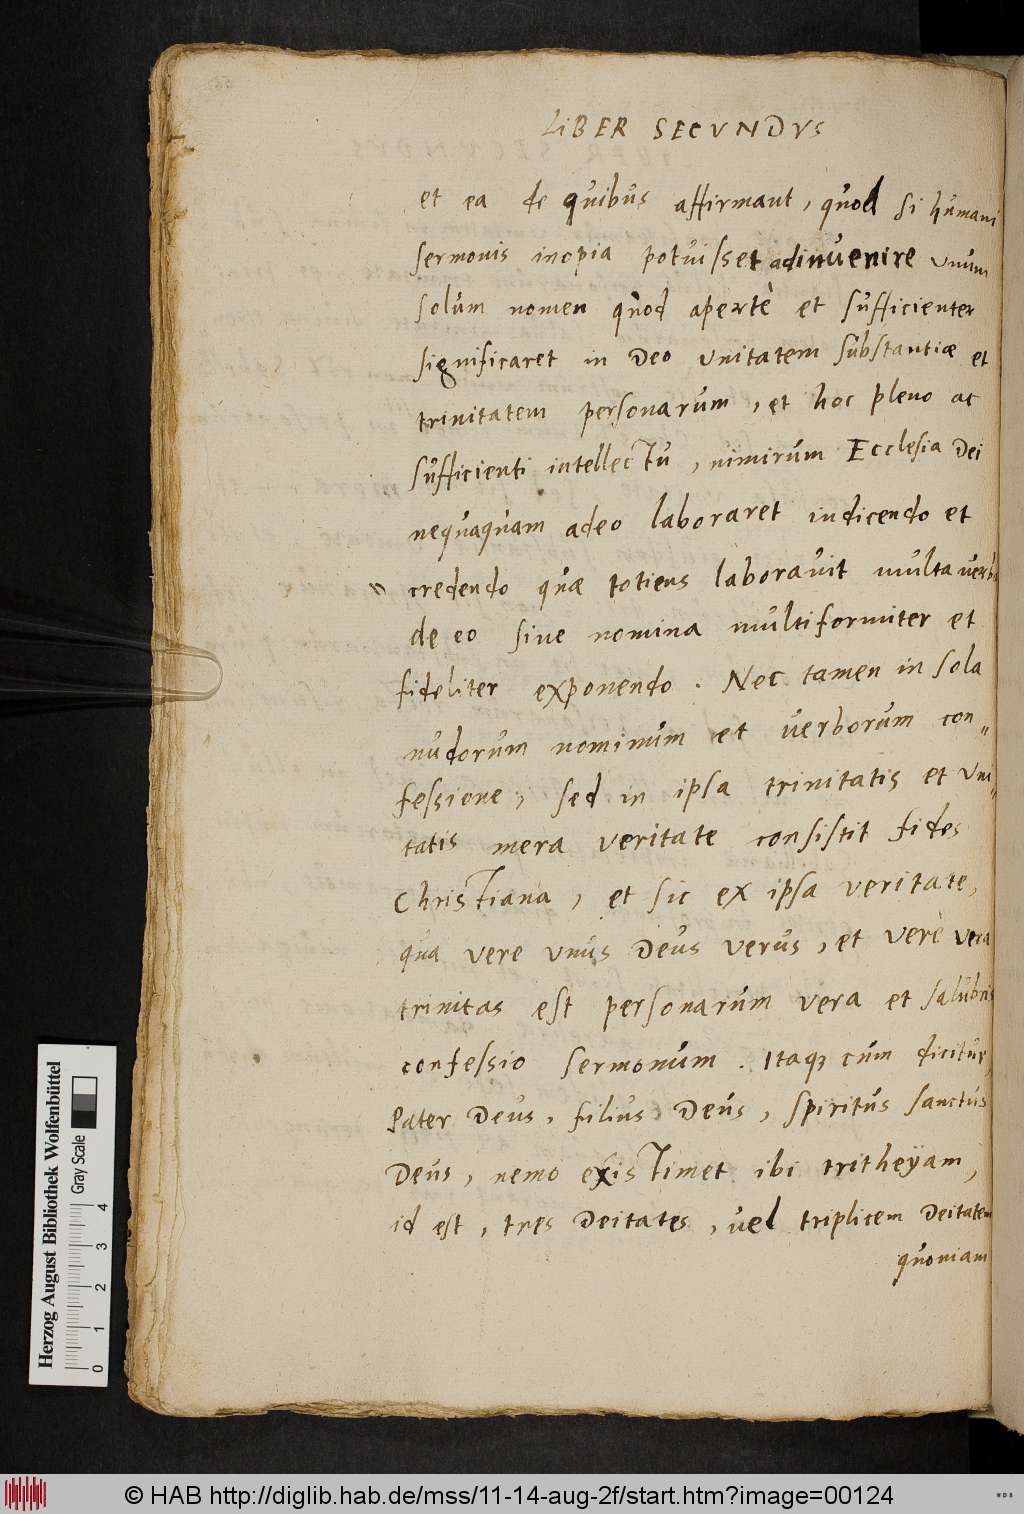 LIBER SECVNDVS
et ea de quibus affirmant, quod si humani
sermonis inopia potuisset adinuenire vnum
solum nomen quod apertè et sufficienter
significaret in Deo vnitatem substantiæ et
trinitatem personarum, et hoc pleno ac
sufficienti intellectu, nimirum Ecclesia Dei
nequaquam adeo laboraret indicendo et
credendo quæ totiens laborauit multa verba
de eo siue nomina multiformiter et
fideliter exponendo. Nec tamen in sola
nudorum nominum et verborum con„
fessione, sed in ipsa trinitatis et vni„
tatis mera veritate consistit fides
Christiana, et sic ex ipsa veritate,
qua vere vnus Deus verus, et verè vera
trinitas est personarum vera et salubris
confessio sermonum. Itaqꝫ cum dicitur,
Pater Deus, filius Deus, spiritus sanctus
Deus, nemo existimet ibi tritheÿam,
id est, tres Deitates, vel triplicem Deitatem
quoniam
Herzog August Bibliothek Wolfenbüttel
Gray Scale
0 1 2 3 4
© HAB http://diglib.hab.de/mss/11-14-aug-2f/start.htm?image=00124